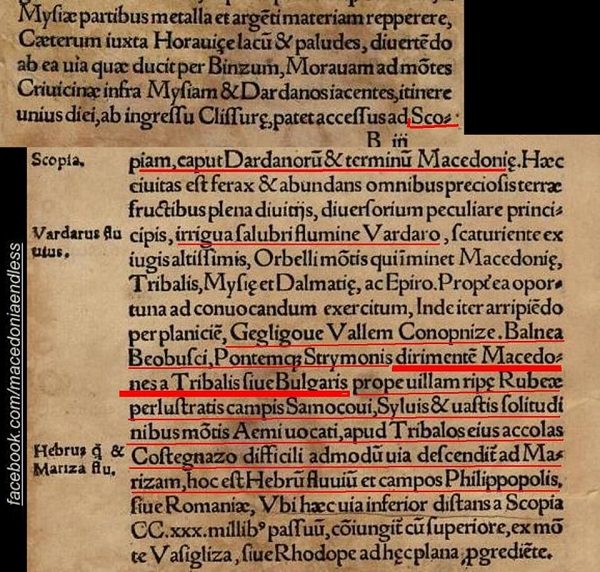 Myſiæ partibus metalla et argēti materiam repperere,
Cæterum iuxta Horauiçe lacū & paludes, diuertēdo
ab ea uia quæ ducit per Binzum, Morauam ad mõtes
Criuicinæ infra Myſiam & Dardanos iacentes, itinere
unius diei, ab ingreſſu Cliſſurę, patet acceſſus ad Sco⸗
B iii
Scopia.
piam, caput Dardanorū & terminū Macedonię. Hæc
ciuitas eſt ferax & abundans omnibus precioſis terræ
fructibus plena diuitijs, diuerſorium peculiare princi⸗
Vardarus flu
uius.
cipis, irrigua ſalubri flumine Vardaro, ſcaturiente ex
iugis altiſſimis, Orbelli mõtis qui iminet Macedonię,
Tribalis, Myſię et Dalmatię, ac Epiro. Propt'ea opor⸗
tuna ad conuocandum exercitum, Inde iter arripiēdo
per planiciē, Gegligoue Vallem Conopnize. Balnea
Beobuſci, Pontemq; Strymonis dirimentē Macedo⸗
nes a Tribalis ſiue Bulgaris prope uillam ripę Rubeæ
perluſtratis campis Samocoui, Syluis & uaſtis ſolitudi
nibus mõtis Aemi uocati, apud Tribalos eius accolas
Hebrus q̃ &
Mariza flu.
Coſtegnazo difficili admodū uia deſcendit̃ ad Ma⸗
rizam, hoc eſt Hebrū fluuiū et campos Philippopolis,
ſiue Romaniæ, Vbi hæc uia inferior diſtans a Scopia
CC.xxx. millibꝰ paſſuū, cõiungit̃ cū ſuperiore, ex mõ
te Vaſigliza, ſiue Rhodope ad hęc plana ꝓgrediēte.
facebook.com/macedoniaendless